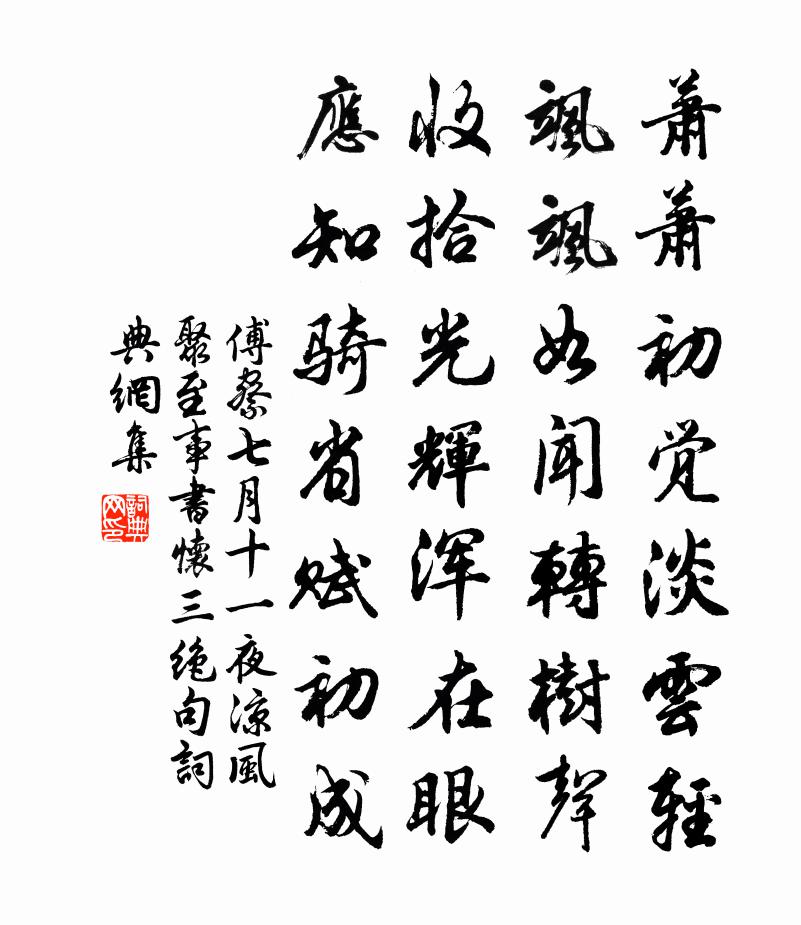 蕭蕭初觉淡雲輕
颯颯如聞轉樹聲
收拾光輝渾在眼
應知騎省赋初成
傅察七月十一夜凉風
聚至事書懷三绝句詞
典網集
詞典网印